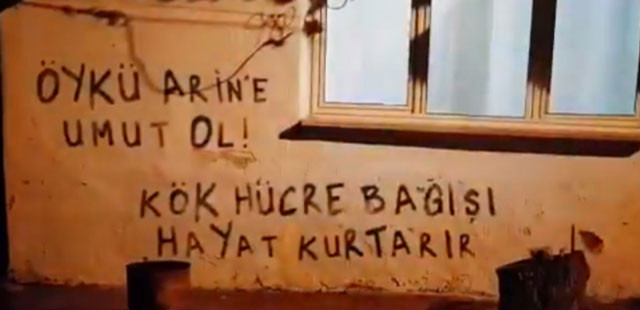 ÖYKÜ ARİN'E
UMUT OL!
KÖK HÜCRE BAĞIŞI
HAYAT KURTARIR